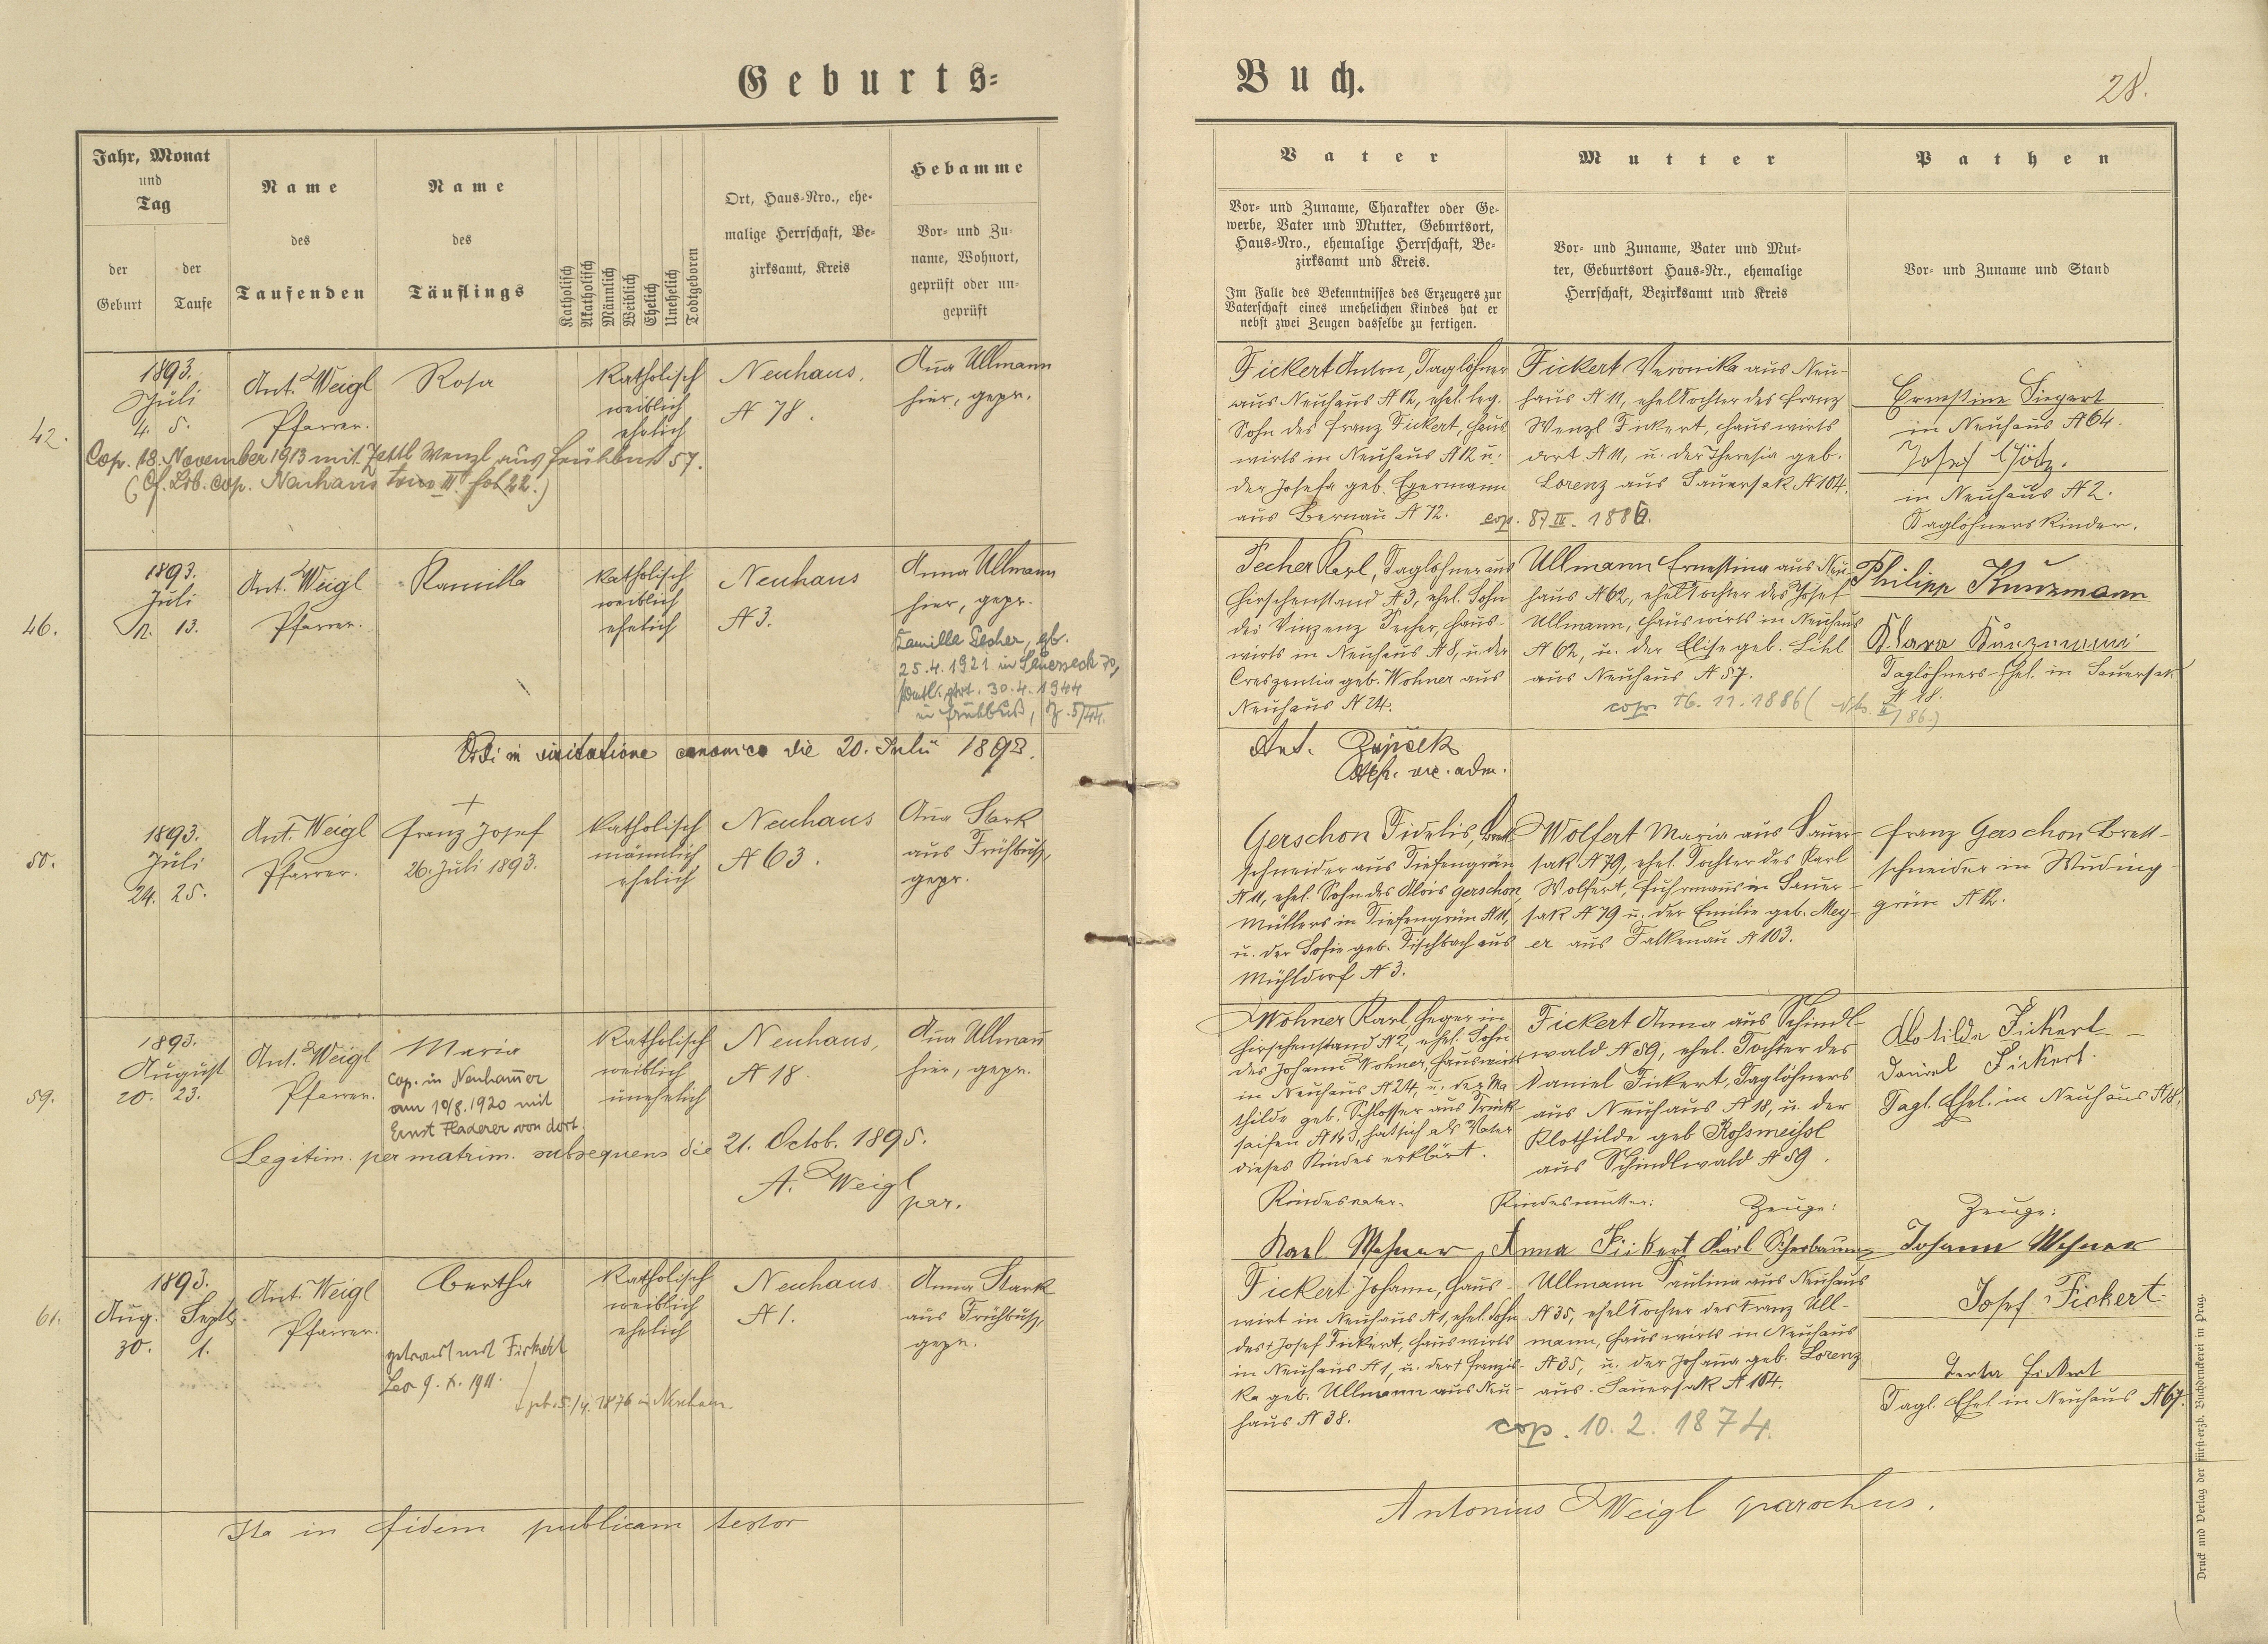 Geburts=
Buch.
28.
Jahr, Monat
und
Tag
der
Geburt
der
Taufe
Name
des
Taufenden
Name
des
Täuflings
Katholisch
Akatholisch
Männlich
Weiblich
Ehelich
Unehelich
Todtgeboren
Ort, Haus=Nro., ehe=
malige Herrschaft, Be=
zirksamt, Kreis
Hebamme
Vor= und Zu=
name, Wohnort,
geprüft oder un=
geprüft
Vater
Vor= und Zuname, Charakter oder Ge=
werbe, Vater und Mutter, Geburtsort,
Haus=Nro., ehemalige Herrschaft, Be=
zirksamt und Kreis.
Im Falle des Bekenntnisses des Erzeugers zur
Vaterschaft eines unehelichen Kindes hat er
nebst zwei Zeugen dasselbe zu fertigen.
Mutter
Vor= und Zuname, Vater und Mut=
ter, Geburtsort Haus=Nr., ehemalige
Herrschaft, Bezirksamt und Kreis
Pathen
Vor= und Zuname und Stand
42.
1893.
Juli
4. 5.
Ant. Weigl
Pfarrer.
Rosa
Katholisch
weiblich
ehelich
Neuhaus,
N 78.
Anna Ullmann
hier, gepr.
Cop. 18. November 1913 mit Zettl Wenzl aus Frühbuß 57.
(Cf. Lib. cop. Neuhaus tom III. fol 22.)
Fickert Anton, Taglöhner
aus Neuhaus N 12, ehel. leg.
Sohn des Franz Fickert, Haus
wirts in Neuhaus N 12 u.
der Josefa geb. Egermann
aus Bernau N 72.
Fickert Veronika aus Neu-
haus N 11, ehel Tochter des Franz
Wenzl Fickert, Hauswirts
dort N 11, u. der Theresia geb.
Lorenz aus Sauersak N 104.
cop.
1886.
Ernestine Siegert
in Neuhaus N 64.
Josef Götz.
in Neuhaus N 2.
Taglöhners Kinder.
46.
1893.
Juli
13.
Ant. Weigl
Pfarrer.
Kamilla
Katholisch
weiblich
ehelich
Neuhaus
N 3.
Anna Ullmann
hier, gepr.
Kamilla Pecher, gb.
25.4.1921 in Sauersack 70,
30.4.1944
in Frühbuß,
Pecher Karl, Taglöhner aus
Hirschenstand N 3, ehel. Sohn
des Vinzenz Pecher, Haus-
wirts in Neuhaus N 8, u. der
Creszentia geb. Wohner aus
Neuhaus N 24.
Ullmann Ernestina aus Neu-
haus N 62, ehel Tochter des Josef
Ullmann, Hauswirts in Neuhaus
N 62, u. der Elise geb. Lihl
aus Neuhaus N 57.
cop. 16.11.1886
Philipp Kunzmann
Klara Kunzmann
Taglöhners Ehel. in Sauersak
N 18.
Vidi in visitatione canonica die 20. Julii 1893.
Ant.
vic. adm.
50.
1893.
Juli
24. 25.
Ant. Weigl
Pfarrer.
+
Franz Josef
26. Juli 1893.
Katholisch
männlich
ehelich
Neuhaus
N 63.
Anna Stark
aus Frühbuß,
gepr.
Gerschon Fidelis, Brett
schneider aus Tiefengrün
N 11, ehel. Sohn des Alois Gerschon,
Müllers in Tiefengrün N 11,
u. der Sofie geb. Fischbach aus
Mühldorf N 3.
Wolfert Maria aus Sauer-
sak N 79, ehel. Tochter des Karl
Wolfert, Fuhrmanns in Sauer-
sak N 79 u. der Emilie geb. Mey-
er aus Falkenau N 103.
Franz Gerschon Brett-
schneider in Wuding-
grün N 12.
59.
1893.
August
20. 23.
Ant. Weigl
Pfarrer.
Maria
cop. in Neuhammer
am 10/8.1920 mit
Ernst Fladerer von dort.
Katholisch
weiblich
unehelich
Neuhaus,
N 18
Anna Ullmann
hier, gepr.
Legitim. per matrim. subsequens die 21. Octob. 1895.
A. Weigl
par.
Wohner Karl Heger in
Hirschenstand N 2, ehel. Sohn
des Johann Wohner, Hauswirts
in Neuhaus N 24, u. der Ma-
thilde geb. Schlosser aus Trink-
saifen N 143, hat sich als Vater
dieses Kindes erklärt.
Fickert Anna aus Schindl-
wald N 59, ehel. Tochter des
Daniel Fickert, Taglöhners
aus Neuhaus N 18, u. der
Klothilde geb Rossmeissl
aus Schindlwald N 59.
Klotilde Fickert
Daniel Fickert.
Tagl. Ehel. in Neuhaus N 18.
Kindesvater.
Kindesmutter:
Zeuge:
Zeuge:
Karl Wohner
Anna Fickert
Karl Scherbaum
Johann Wohner
61.
1893.
Aug. Septb.
30. 1.
Ant. Weigl
Pfarrer.
Bertha
getraut mit Fickert
Leo 9. X. 1911.
geb. 5./4. 1876 in Neuhaus
Katholisch
weiblich
ehelich
Neuhaus
N 1.
Anna Stark
aus Frühbuß,
gepr.
Fickert Johann, Haus-
wirt in Neuhaus N 1, ehel. Sohn
des + Josef Fickert, Hauswirts
in Neuhaus N 1, u. der + Franzis-
ka geb. Ullmann aus Neu-
haus N 38.
Ullmann Paulina aus Neuhaus
N 35, ehel Tochter des Franz Ull-
mann, Hauswirts in Neuhaus
N 35, u. der Johanna geb. Lorenz
aus Sauersak N 104.
cop. 10.2.1874.
Josef Fickert
Fickert
Tagl. Ehel. in Neuhaus N 67.
Ita in fidem publicam testor
Antonius Weigl parochus.
Druck und Verlag der fürst-erzb. Buchdruckerei in Prag.